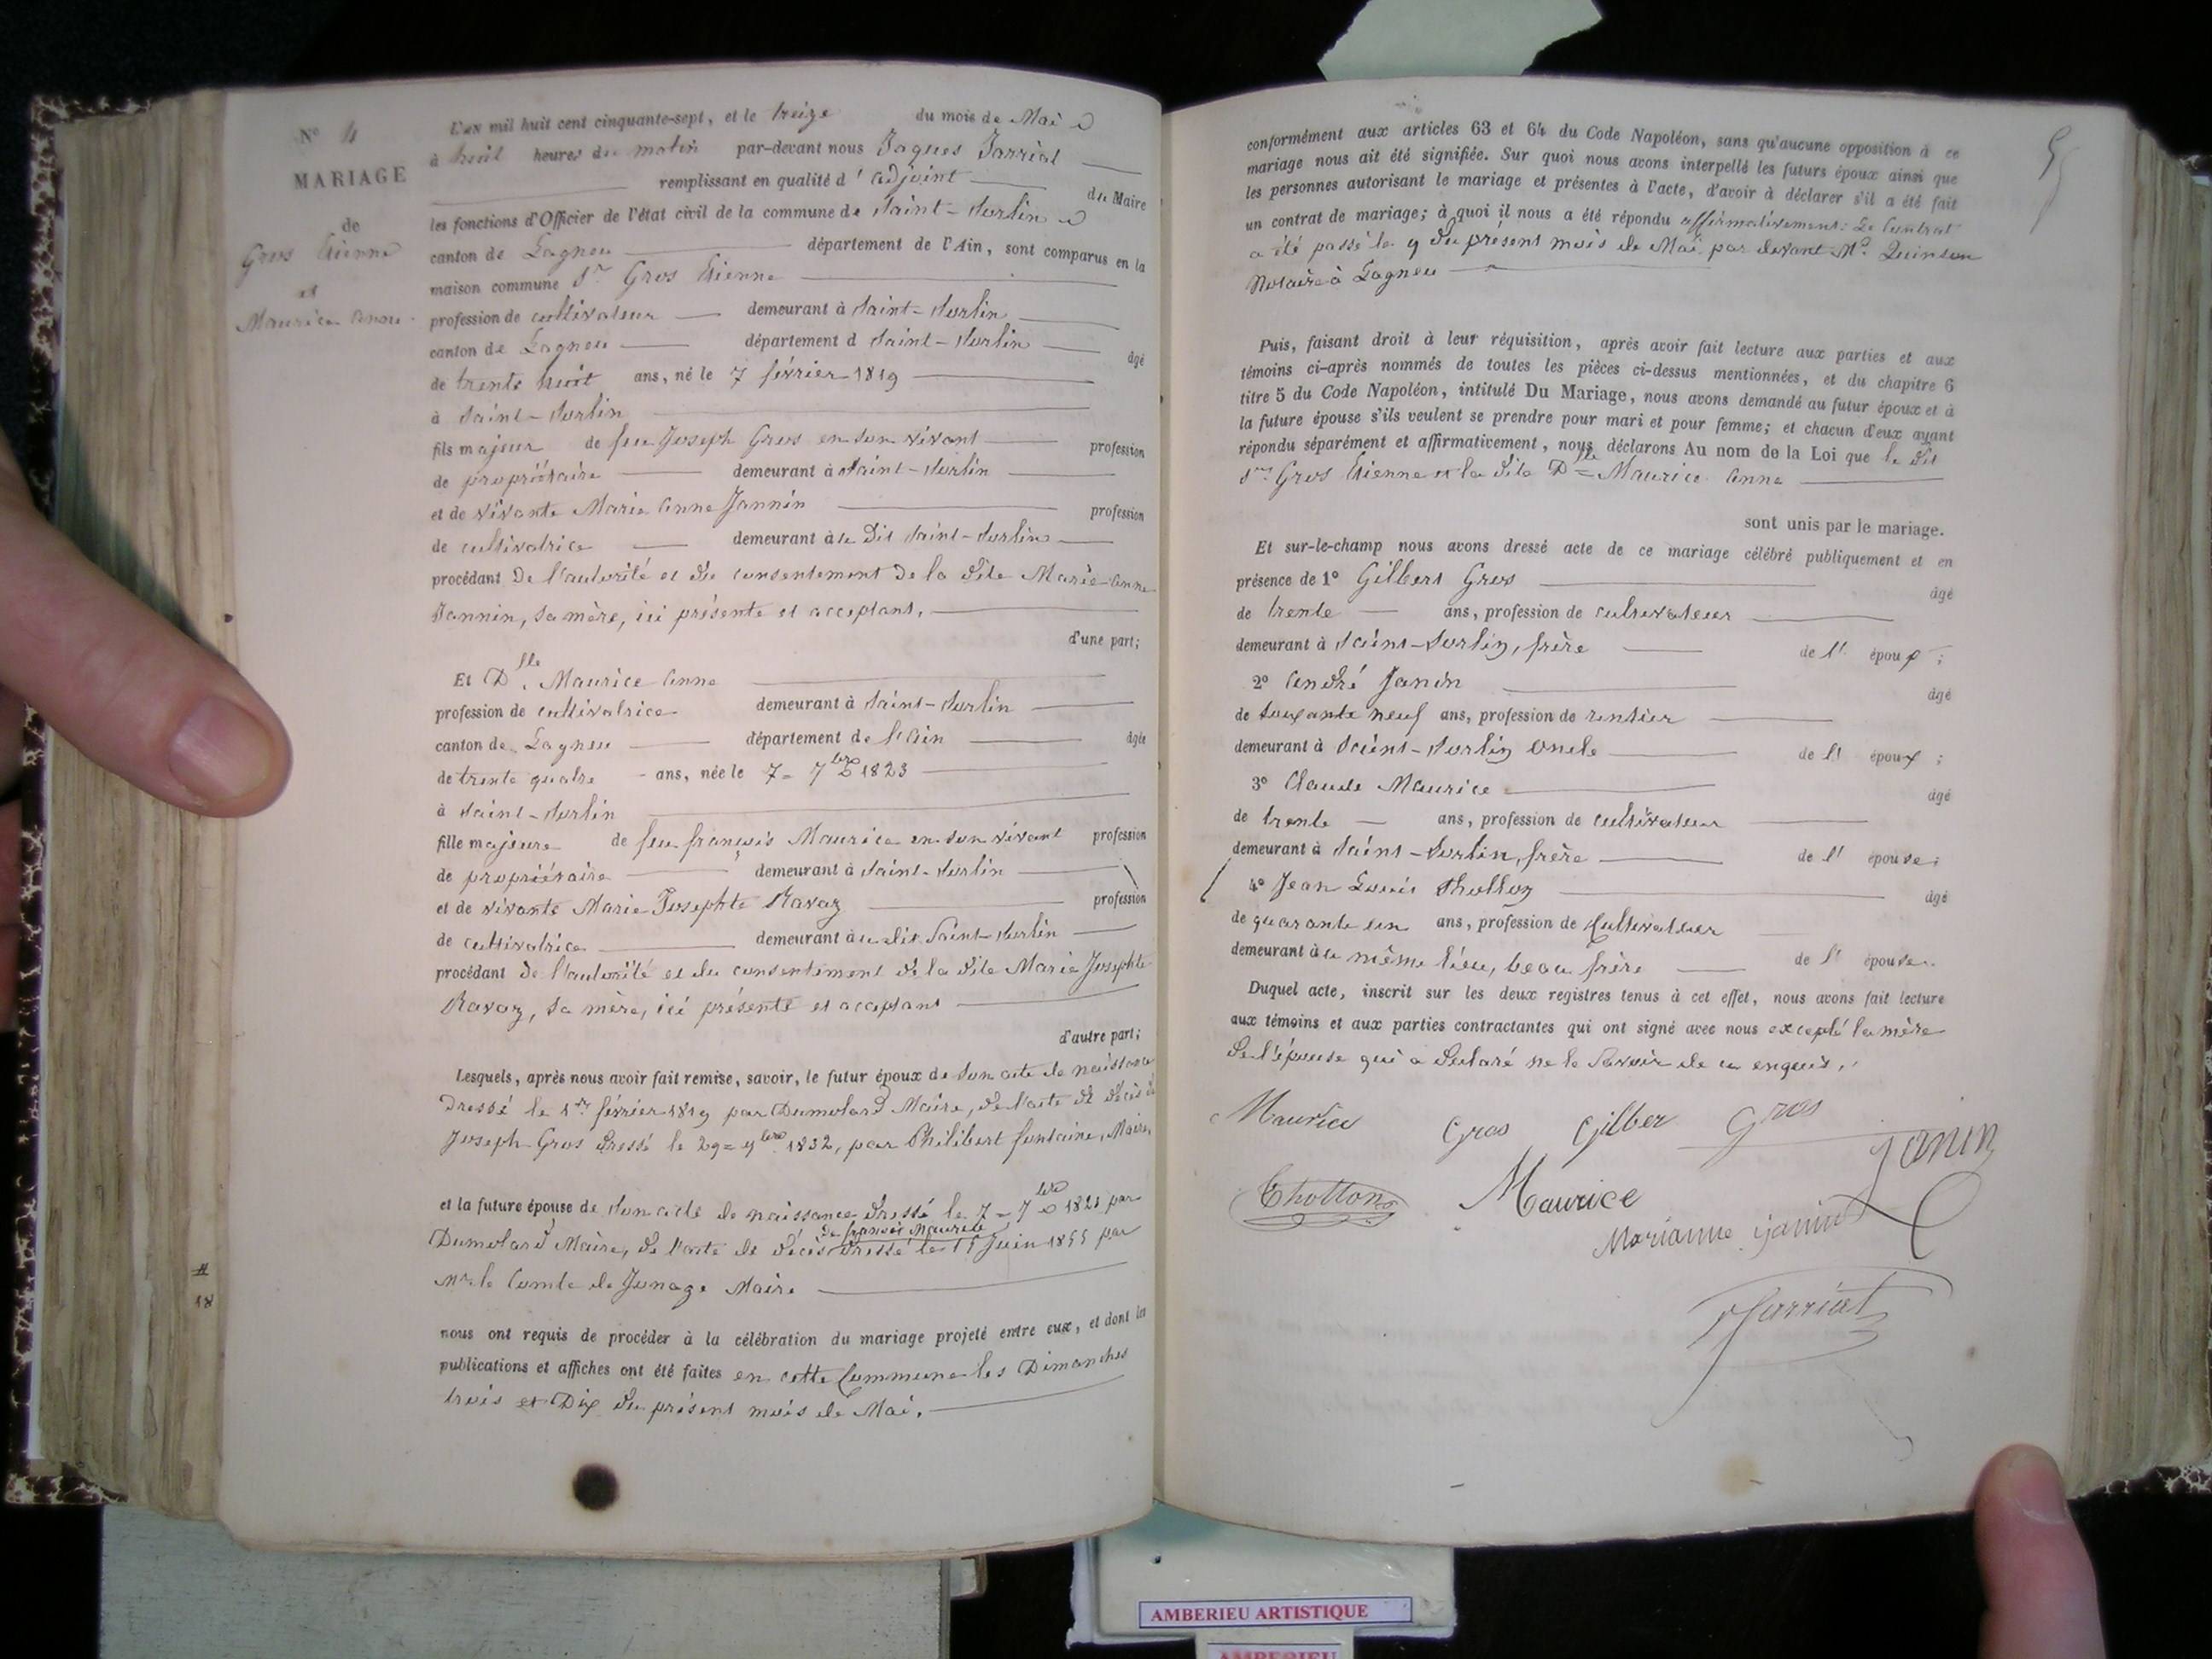 N° 4
MARIAGE
de
Gros Etienne
et
Maurice Anne
L'an mil huit cent cinquante-sept, et le treize du mois de Mai
à huit heures du matin par-devant nous Jaques Jarriat
remplissant en qualité d'adjoint du Maire
les fonctions d'Officier de l'état civil de la commune de Saint-Sorlin
canton de Lagneu département de l'Ain, sont comparus en la
maison commune Sr Gros Etienne
profession de cultivateur demeurant à Saint-Sorlin
canton de Lagneu département d Saint-Sorlin âgé
de trente huit ans, né le 7 février 1819
à Saint-Sorlin
fils majeur de feu Joseph Gros en son vivant profession
de propriétaire demeurant à Saint-Sorlin
et de vivante Marie Anne Jannin profession
de cultivatrice demeurant au dit Saint-Sorlin
procédant de l'autorité et du consentement de la dite Marie-Anne
Jannin, sa mère, ici présente et acceptant.
d'une part;
Et Dlle Maurice Anne
profession de cultivatrice demeurant à Saint-Sorlin
canton de Lagneu département de l'Ain âgée
de trente quatre ans, née le 7 = 7bre 1823
à Saint-Sorlin
fille majeure de feu françois Maurice en son vivant profession
de propriétaire demeurant à Saint-Sorlin
et de vivante Marie Josephte Ravaz profession
de cultivatrice demeurant au dit Saint-Sorlin
procédant de l'autorité et du consentement de la dite Marie Josephte
Ravaz, sa mère, ici présente et acceptant
d'autre part;
Lesquels, après nous avoir fait remise, savoir, le futur époux de son acte de naissance
dressé le février 1819 par Dumolard Maire, de l'acte de décès de
Joseph Gros dressé le 29 = 9bre 1832, par Philibert fontaine, Maire,
et la future épouse de son acte de naissance dressé le 7 = 7bre par
de françois Maurice
Dumolard Maire, de l'acte de décès dressé le 15 Juin 1855 par
Mr le Comte de Jonage Maire
#
18
nous ont requis de procéder à la célébration du mariage projeté entre eux, et dont les
publications et affiches ont été faites en cette Commune les Dimanches
trois et Dix du présent mois de Mai.
5
conformément aux articles 63 et 64 du Code Napoléon, sans qu'aucune opposition à ce
mariage nous ait été signifiée. Sur quoi nous avons interpellé les futurs époux ainsi que
les personnes autorisant le mariage et présentes à l'acte, d'avoir à déclarer s'il a été fait
un contrat de mariage; à quoi il nous a été répondu affirmativement: Le Contrat
a été passé le 9 du présent mois de Mai par devant Me Quinson
Notaire à Lagneu
Puis, faisant droit à leur réquisition, après avoir fait lecture aux parties et aux
témoins ci-après nommés de toutes les pièces ci-dessus mentionnées, et du chapitre 6
titre 5 du Code Napoléon, intitulé Du Mariage, nous avons demandé au futur époux et à
la future épouse s'ils veulent se prendre pour mari et pour femme; et chacun d'eux ayant
répondu séparément et affirmativement, nous déclarons Au nom de la Loi que le dit
Sr Gros Etienne et la dite Dlle Maurice Anne
sont unis par le mariage.
Et sur-le-champ nous avons dressé acte de ce mariage célébré publiquement et en
présence de 1° Gilbert Gros âgé
de trente ans, profession de cultivateur
demeurant à Saint-Sorlin, frère de l' époux;
2° André Janin âgé
de soixante neuf ans, profession de rentier
demeurant à Saint-Sorlin Oncle de l' époux;
3° Claude Maurice âgé
de trente ans, profession de cultivateur
demeurant à Saint-Sorlin, frère de l' épouse;
4° Jean Louis Thollon âgé
de quarante un ans, profession de Cultivateur
demeurant au même lieu, beau frère de l' épouse.
Duquel acte, inscrit sur les deux registres tenus à cet effet, nous avons fait lecture
aux témoins et aux parties contractantes qui ont signé avec nous excepté la mère
de l'épouse qui a déclaré ne le savoir de ce enquis.
Maurice Gros Gilber Gros Janin
Thollon Maurice
Marianne Janin
Jarriat
AMBERIEU ARTISTIQUE
AMBERIEU